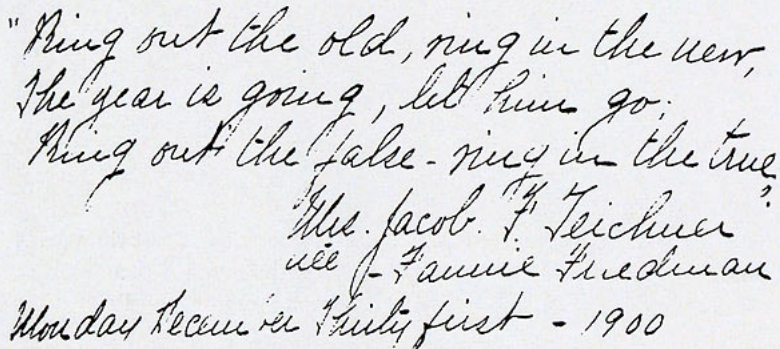 "Ring out the old, ring in the new,
The year is going, let him go;
Ring out the false - ring in the true"
Mrs. Jacob. F. Teichner
née - Fannie Friedman
Monday December Thirty first - 1900